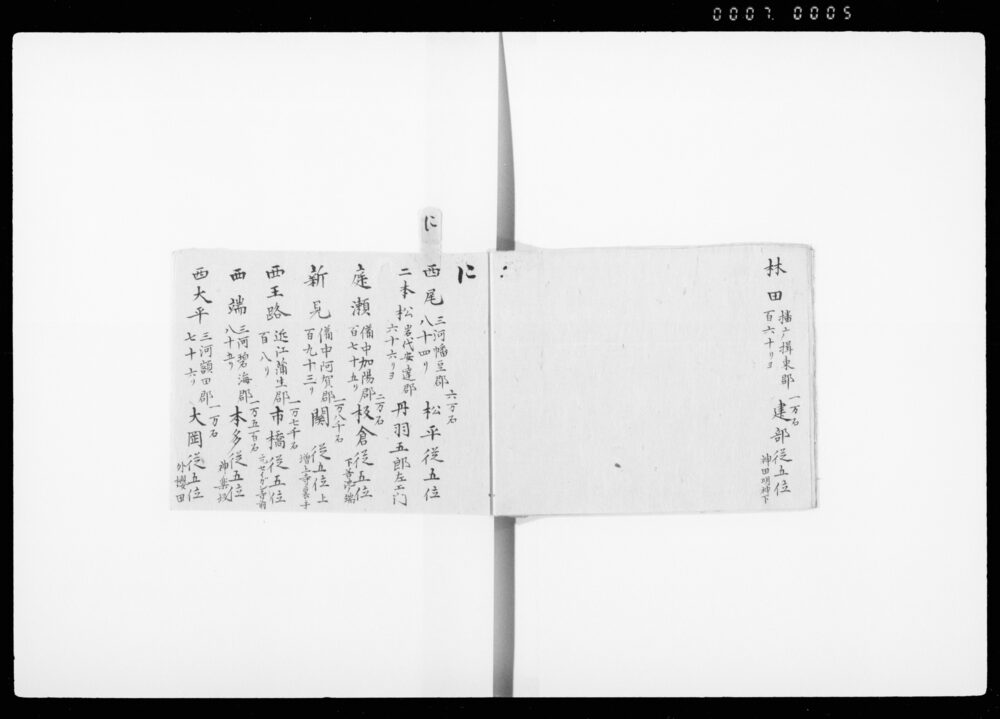 0007 0005
林田 播戸揖東郡 一万石 建部従五位
百六十リヨ 神田明神下
に
に
西尾 三河幡豆郡 六万石 松平従五位
八十四リ
二本松 岩代安達郡 丹羽五郎左エ門
六十六リヨ
庭瀬 備中加陽郡 二万石 板倉従五位
百七十五リ
新見 備中阿賀郡 一万八千石 関従五位上
百九十三リ 増上寺
西王路 近江蒲生郡 一万七千石 市橋従五位
百八リ
西端 三河碧海郡 一万五百石 本多従五位
八十五リ 神楽坂
西大平 三河額田郡 一万石 大岡従五位
七十六リ 外桜田